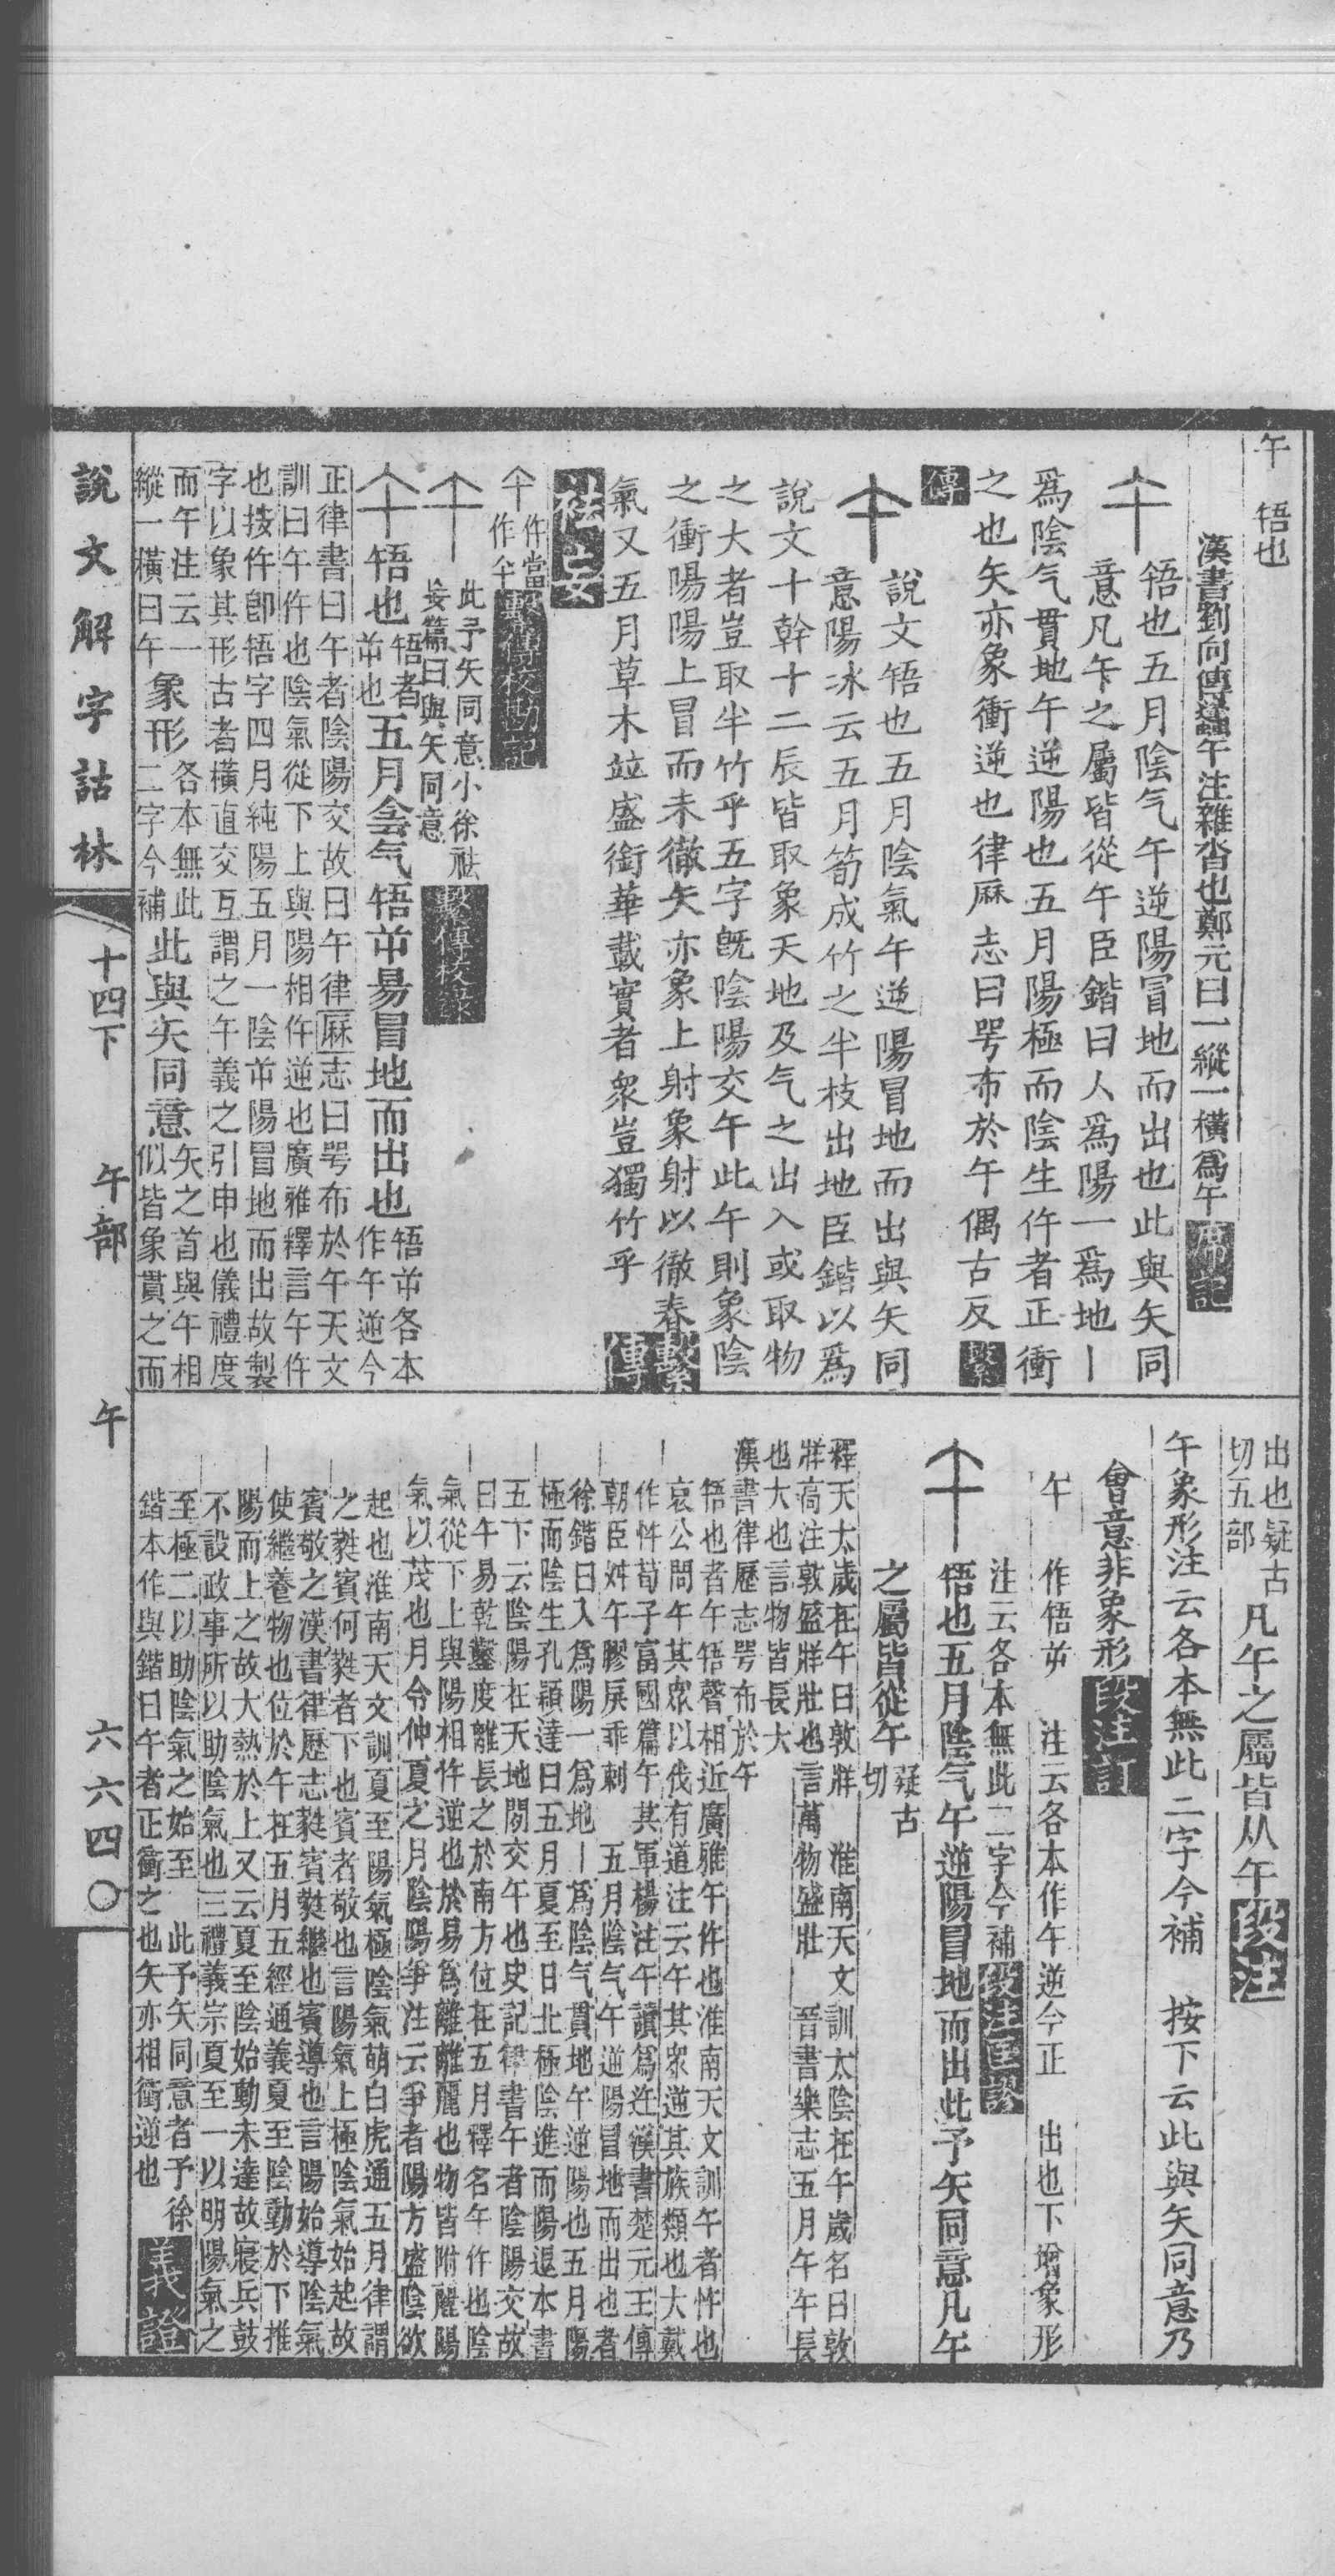 午　牾也
漢書劉向傳蠭午注雜沓也鄭元曰一縱一橫爲午
牾也五月陰气午逆陽冒地而出也此與矢同
意凡午之屬皆從午臣鍇曰人爲陽一爲地丨
爲陰气貫地午逆陽也五月陽極而陰生仵者正衝
之也矢亦象衝逆也律厤志曰咢布於午偶古反繫
傳
說文牾也五月陰氣午逆陽冒地而出與矢同
意陽冰云五月筍成竹之半枝出地臣鍇以爲
說文十幹十二辰皆取象天地及气之出入或取物
之大者豈取半竹乎五字旣陰陽交午此午則象陰
之衝陽陽上冒而未徹矢亦象上射象射以徹春
氣又五月草木竝盛銜華載實者衆豈獨竹乎
繫
傳
袪妄
仵當
作
繫傳校勘記
此予矢同意小徐祛
妄篇曰與矢同意
繫傳校錄
牾也牾者
屰也五月侌气牾屰昜冒地而出也牾屰各本
作午逆今
正律書曰午者陰陽交故曰午律厤志曰咢布於午天文
訓曰午仵也陰氣從下上與陽相仵逆也廣雅釋言午仵
也按仵卽牾字四月純陽五月一陰屰陽冒地而出故製
字以象其形古者橫直交互謂之午義之引申也儀禮度
而午注云一
縱一橫曰午象形各本無此
二字今補此與矢同意矢之首與午相
似皆象貫之而
說文解字詁林
十四下　午部　午　六六四〇
出也疑古
切五部凡午之屬皆从午段注
午象形注云各本無此二字今補　按下云此與矢同意乃
會意非象形段注訂
午　作牾屰　注云各本作午逆今正　出也下增象形
注云各本無此二字今補段注匡謬
牾也五月陰气午逆陽冒地而出此予矢同意凡午
之屬皆從午疑古
切
釋天太歲在午曰敦牂　淮南天文訓太陰在午歲名曰敦
牂高注敦盛牂壯也言萬物盛壯　晉書樂志五月午午長
也大也言物皆長大
漢書律歷志咢布於午
牾也者午牾聲相近廣雅午仵也淮南天文訓午者忤也
哀公問午其衆以伐有道注云午其衆逆其族類也大戴
作忤荀子富國篇午其軍楊注午讀爲迕漢書楚元王傳
朝臣舛午膠戾乖剌　五月陰气午逆陽冒地而出也者
徐鍇曰入爲陽一爲地丨爲陰气貫地午逆陽也五月陽
極而陰生孔穎達曰五月夏至日北極陰進而陽退本書
五下云陰陽在天地閒交午也史記律書午者陰陽交故
曰午易乾鑿度離長之於南方位在五月釋名午仵也陰
氣從下上與陽相仵逆也於易爲離離麗也物皆附麗陽
氣以茂也月令仲夏之月陰陽爭注云爭者陽方盛陰欲
起也淮南天文訓夏至陽氣極陰氣萌白虎通五月律謂
之蕤賓何蕤者下也賓者敬也言陽氣上極陰氣始起故
賓敬之漢書律歷志蕤賓蕤繼也賓導也言陽始導陰氣
使繼養物也位於午在五月五經通義夏至陰動於下推
陽而上之故大熱於上又云夏至陰始動未達故寢兵鼓
不設政事所以助陰氣也三禮義宗夏至一以明陽氣之
至極二以助陰氣之始至　此予矢同意者予徐
鍇本作與鍇曰午者正衝之也矢亦相衝逆也義證